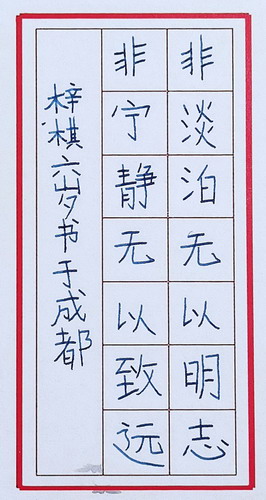 非淡泊无以明志
非宁静无以致远
梓棋六岁书于成都